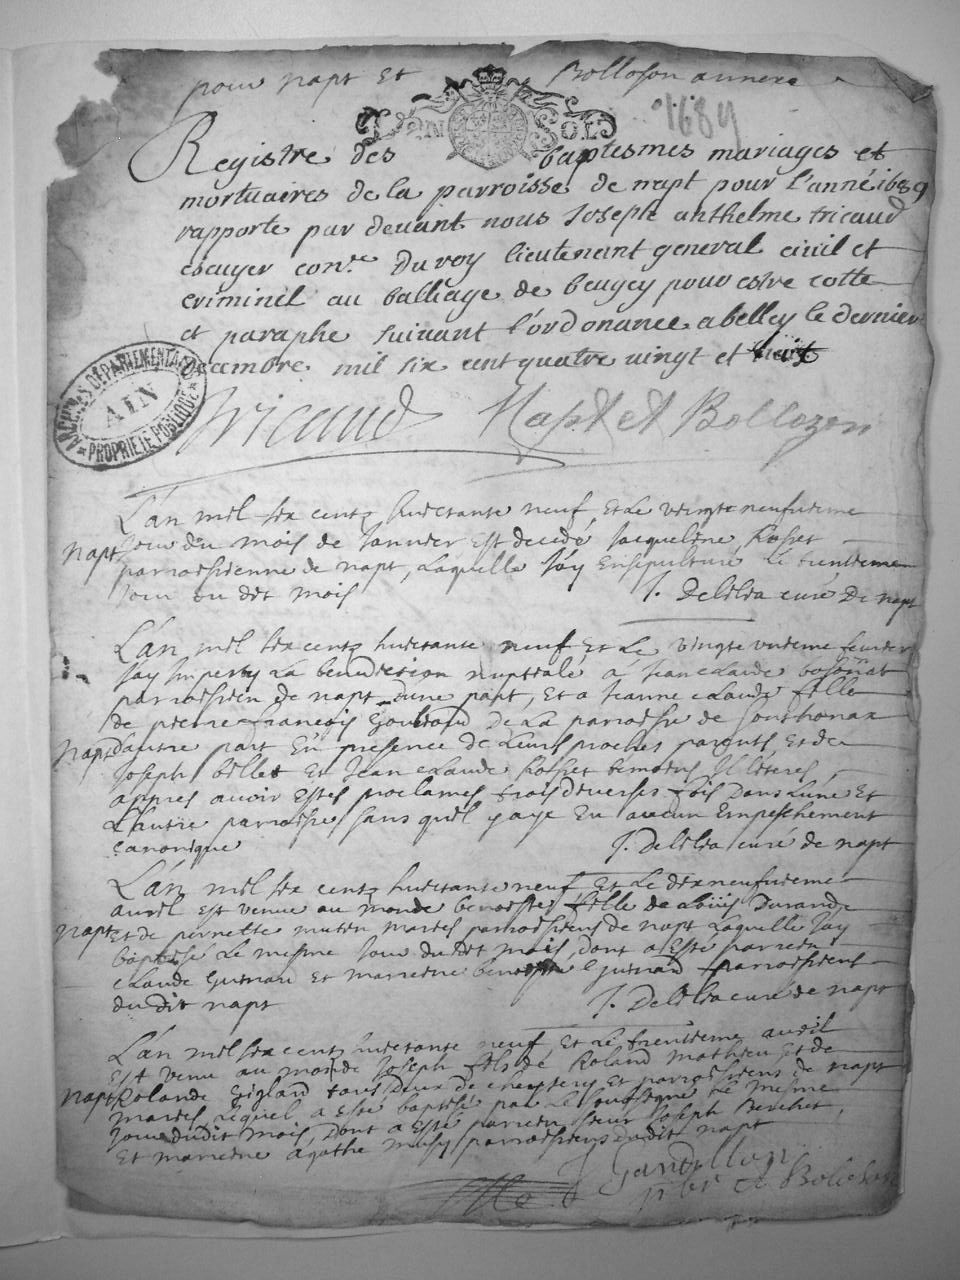 pour napt Et Bolloson annexe
1689
Registre des baptesmes mariages et
mortuaires de la parroisse de napt pour l'année 1689
rapporte par devant nous Joseph anthelme tricaud
escuyer con.re du roy lieutenant general civil et
criminel au balliage de beugey pour estre cotte
et paraphe suivant l'ordonance a belley le dernier
decembre mil six cent quatre vingt et huit
ARCHIVES DÉPARTEMENTALES
AIN
PROPRIÉTÉ PUBLIQUE
Tricaud Napt et Bollozon
L'an mil six centz huictante neuf et le vingte neufvieme
Napt Jour du mois de Janvier est decedé Jacqueline Rosset
parroissienne de napt, laquelle j'ay ensepulturé le trentieme
Jour du dit mois J. Delilia curé de napt
L'an mil six centz huictante neuf et le vingte unieme fevrier
j'ay imperty la benediction nuptiale à Jean claude
parroissien de napt d'une part, et a Jeanne claude fille
de pierre françois de la parroisse de Sonthonax
Napt d'autre part en presence de leurs proches parents, et de
Joseph billet et Jean claude Rosset temoins Illiteres,
appres avoir estes proclamés trois diverses fois dans l'une et
L'autre parroisse sans qu'il y aye eu aucun empeschement
canonique J. Delilia curé de napt
L'an mil six centz huictante neuf et le dix neufvieme
avril est venue au monde benoiste fille de Loüis Durande
Napt et de pernette mariés parroissiens de napt laquelle j'ay
baptisé le mesme jour du dit mois, dont a esté parrein
claude Guinard et marreine benoiste Guinard parroissiens
du dit napt J. Delilia curé de napt
L'an mil six centz huictante neuf et le trentieme avril
est venu au monde Joseph fils de Roland Mathieu et de
Napt Rolande tous deux de et parroissiens de napt
mariés lequel a esté baptisé par le soussigné le mesme
jour dudit mois, dont a esté parrein sieur Joseph Berchet,
et marreine agathe parroissiens dudit napt
Gandillon